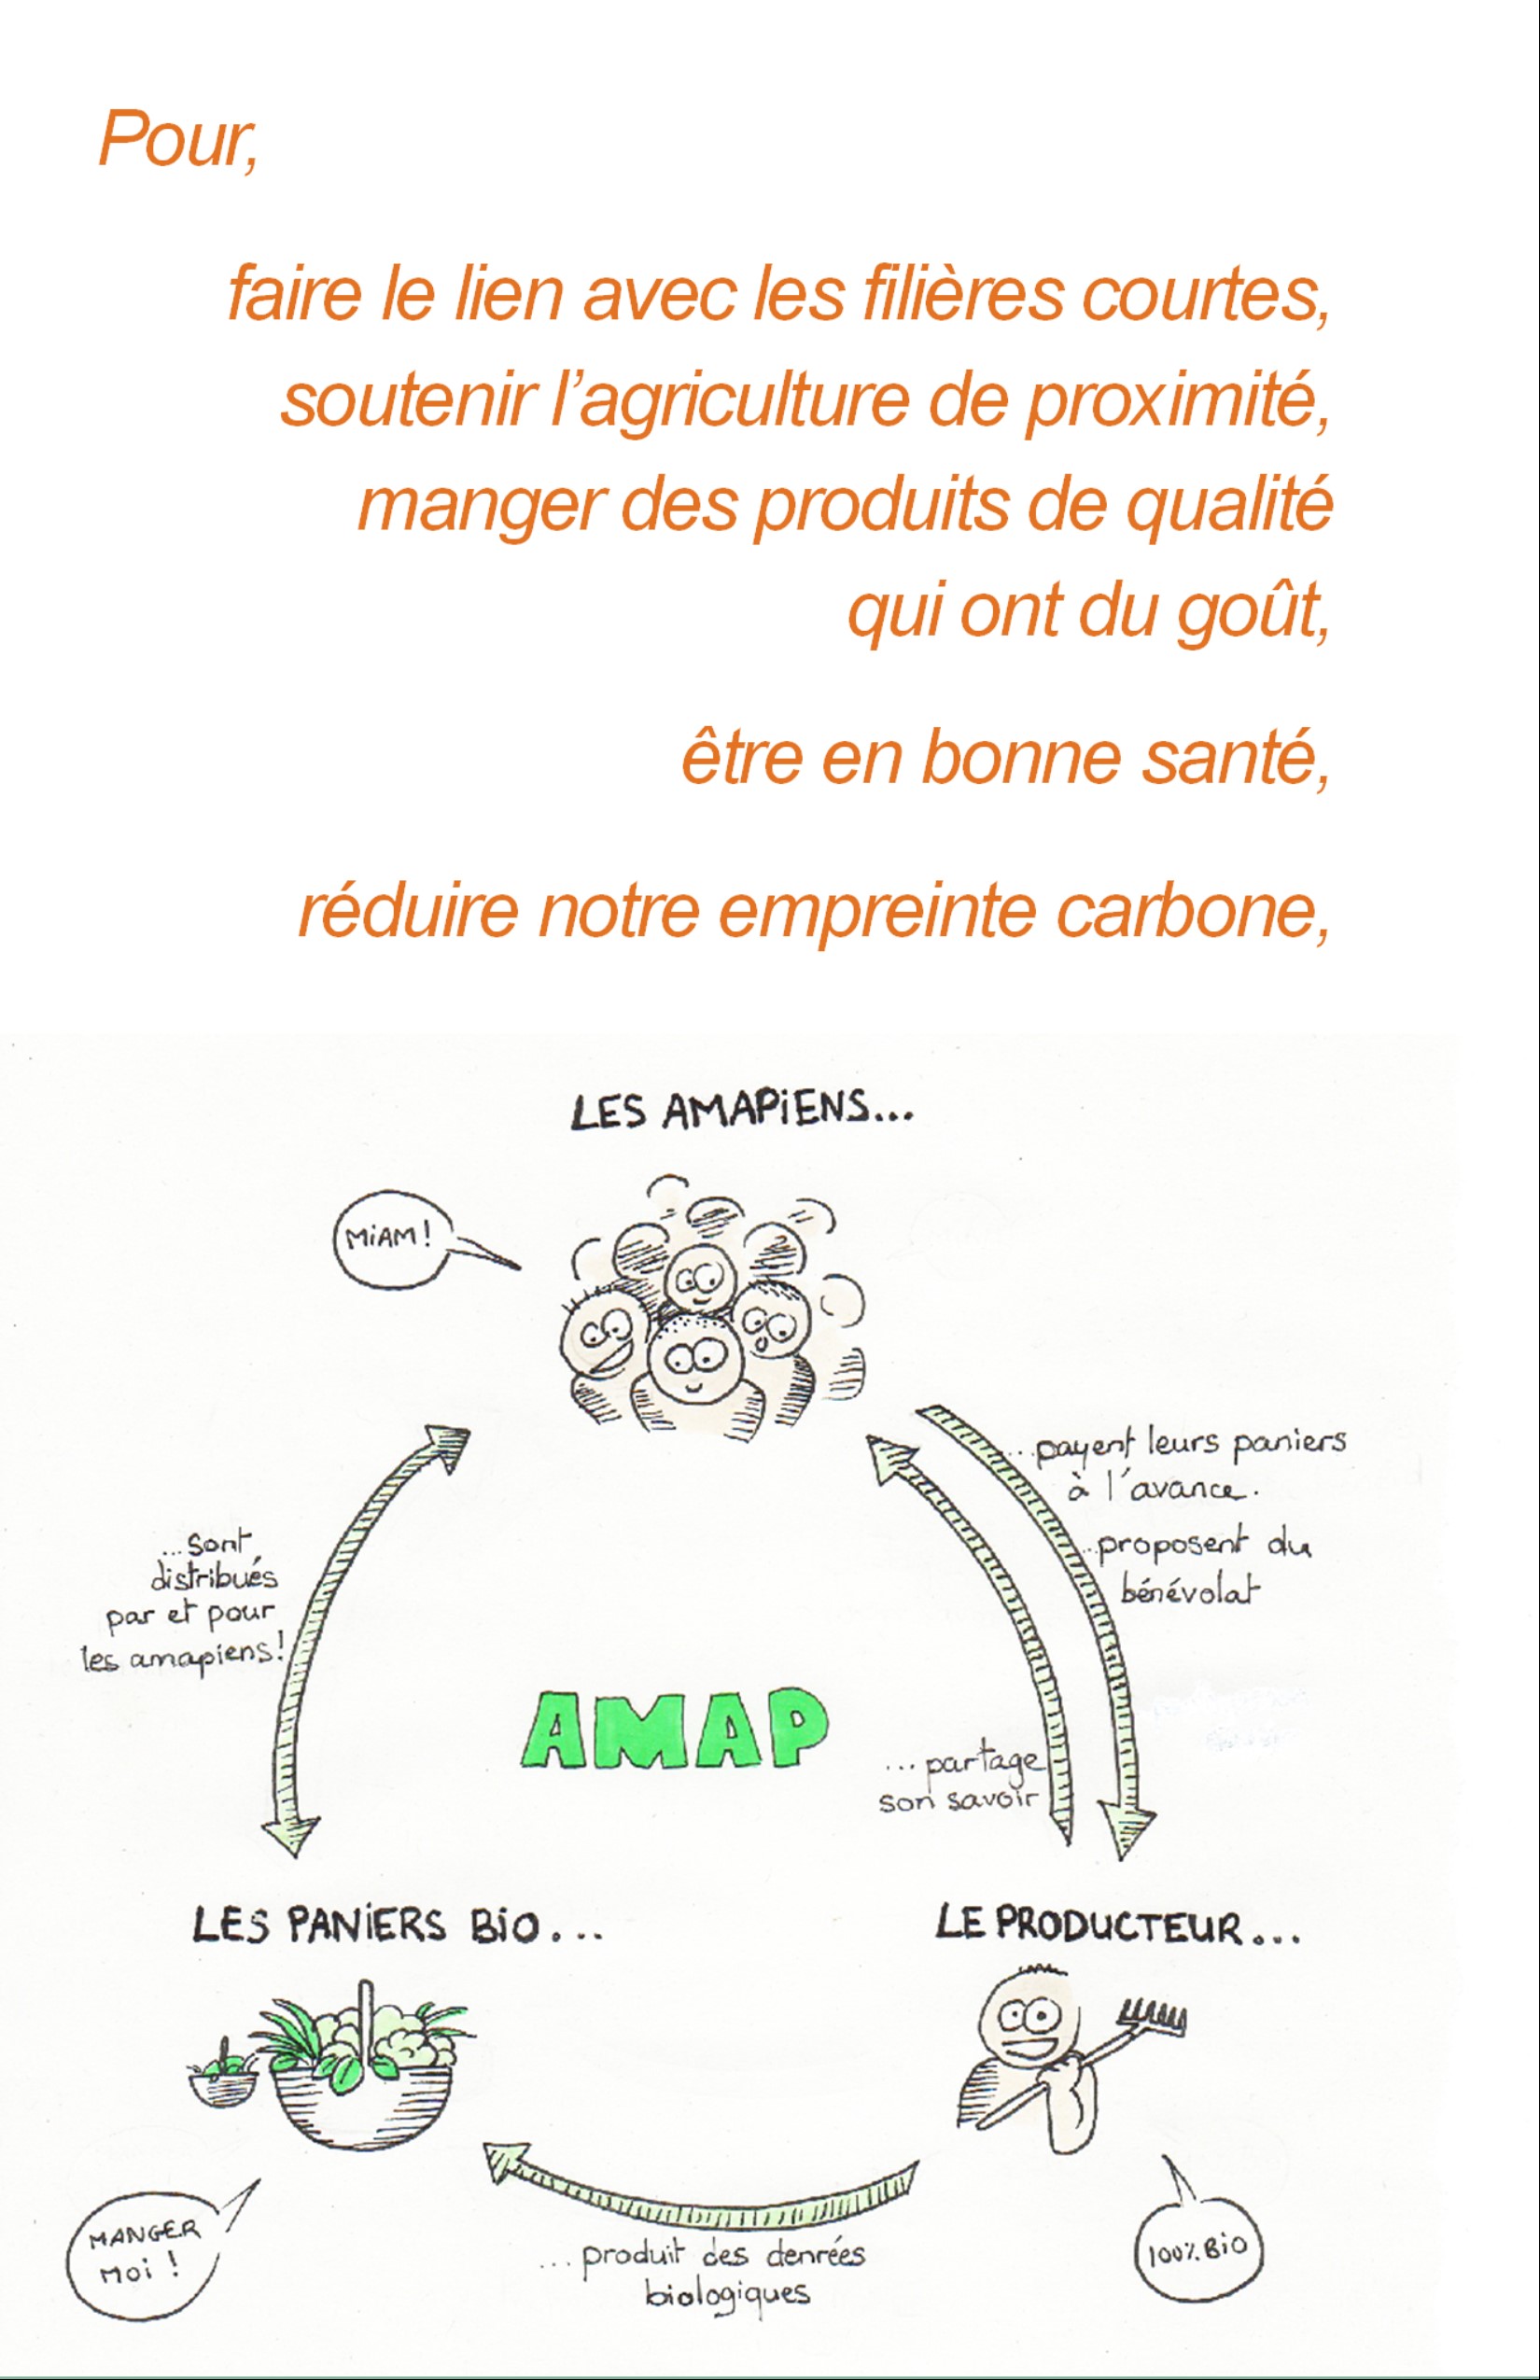 Pour,
faire le lien avec les filières courtes,
soutenir l'agriculture de proximité,
manger des produits de qualité
qui ont du goût,
être en bonne santé,
réduire notre empreinte carbone,
LES AMAPiENS...
MiAM !
...payent leurs paniers
à l'avance.
...proposent du
bénévolat
...sont
distribués
par et pour
les amapiens!
AMAP
...partage
son savoir
LES PANiERS BiO...
LE PRODUCTEUR...
MANGER
MOi !
100% BiO
...produit des denrées
biologiques